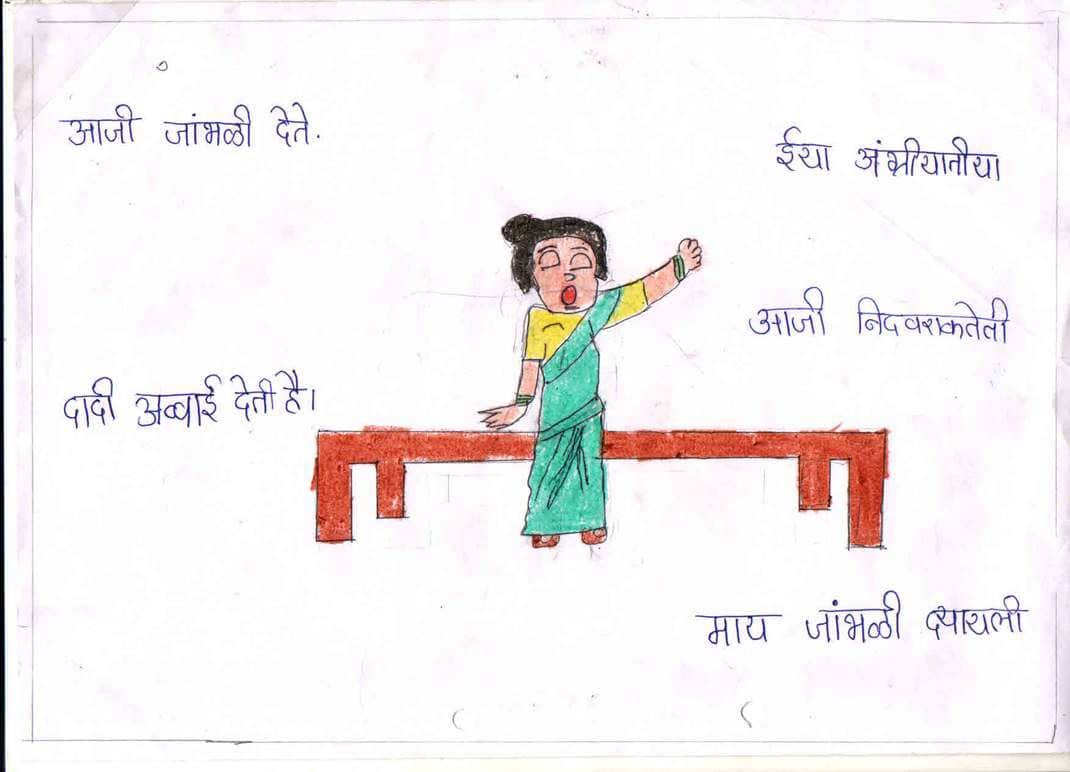 आजी जांभळी देते.
ईया अंभ्रीयातीया
आजी निदवराकतेती
दादी अव्वाई देती है।
माय जांभळी दयारली